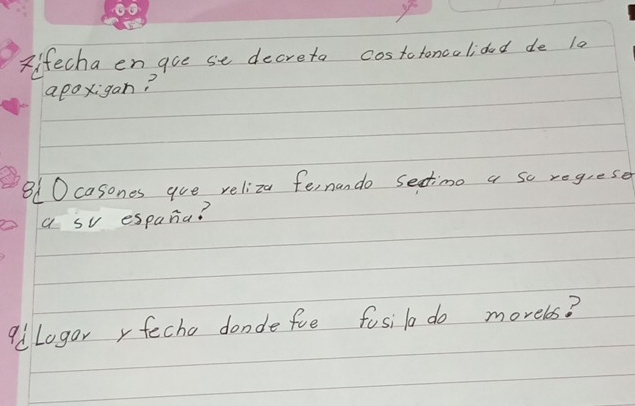 7¿fecha en que se decreta costotoncalidad de la
apoxigan?
8¿Ocasones que reliza fernando sectimo a su regreso
a su españa?
9¿Lugar y fecha donde fue fusilado morelos?